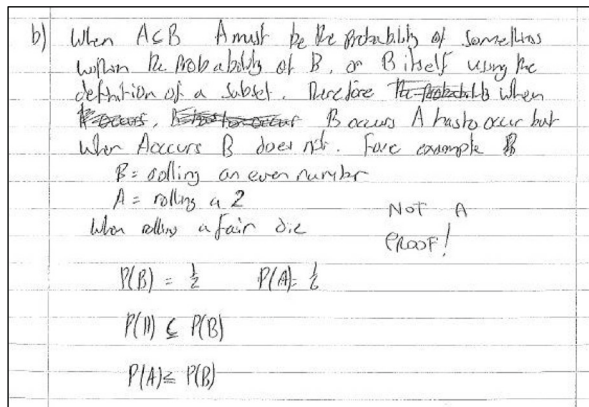 b) When A⊂B A must be the probability of something
within the probability of B, or B itself using the
definition of a subset. Therefore The Probability When
B occurs A has to occur but
When A occurs B does not. For example B
B = rolling an even number
A = rolling a 2
When rolling a fair die
NOT A
PROOF!
P(B) = 1/2 P(A) = 1/2
P(A) ⊆ P(B)
P(A) ≤ P(B)